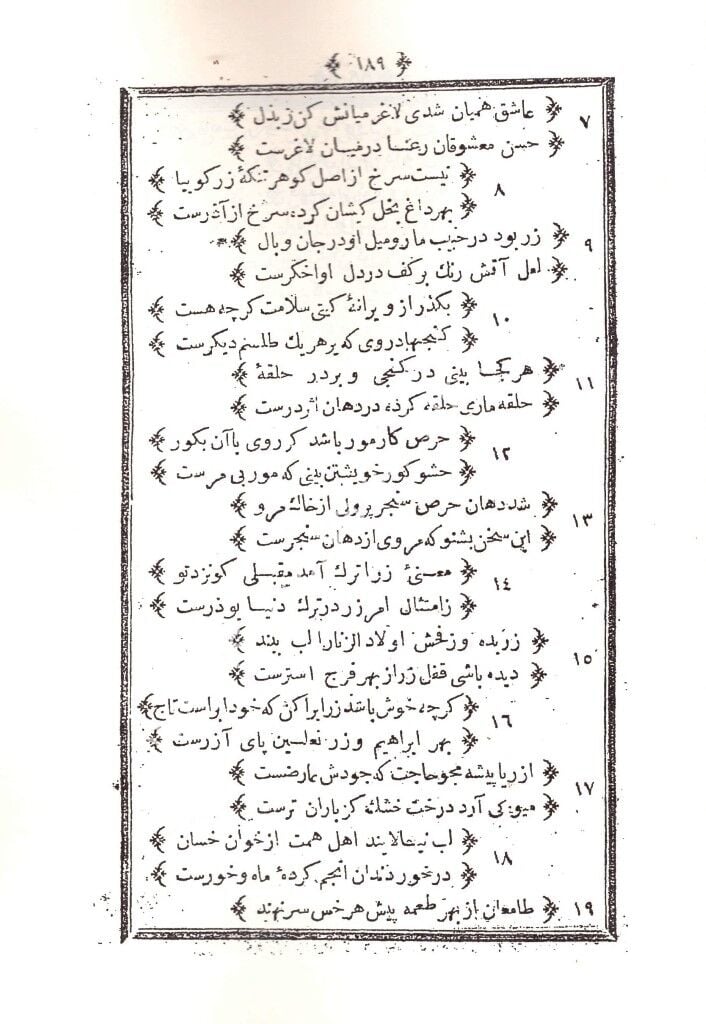 ١٨٩
٧ عاشق هميان شدی لاغر ميانش کن زبذل
حسن معشوقان رعنا در ميان لاغرست
نيست سرخ از اصل گوهر تنکهٔ زر گوييا
٨
بهر داغ بخل کيشان کرده سرخ از آذرست
٩ زر بود در جيب مار و ميل او در جان وبال
لعل آتش رنك بر کف در دل او اخگرست
بگذر از ويرانهٔ گيتی سلامت گرچه هست
١٠
گنجها در وی که بر هر يك طلسم ديکرست
١١ هر کجا بينی در گنجی و بر در حلقهٔ
حلقه ماری حلقه کرده در دهان اژدرست
حرص کار مور باشد گر روی با آن بکور
١٢
حشو کور خويشتن بينی که مور بی مرست
١٣ شد دهان حرص سنجر پر ولی از خاك مرو
اين سخن بشنو که مروی از دهان سنجرست
معنیٔ زر اترك آمد مقبلی کو نزد تو
١٤
زامتثال امر زر در ترك دنيا بوذرست
١٥ زر بده وز فحش اولاد الزنا را لب ببند
ديده باشی قفل زر از بهر فرج استرست
گرچه خوش باشد زر ابراکن که خود ابراست تاج
١٦
بهر ابراهيم وز زر نعلين پای آزرست
١٧ از ريا پيشه مجو حاجت که جودش عارضست
ميوه کی آرد درخت خشك کز باران ترست
لب نيالايند اهل همت از خوان خسان
١٨
در خور دندان انجم گردهٔ ماه و خورست
١٩ طامعان از بهر طعمه پيش هر خس سر نهند